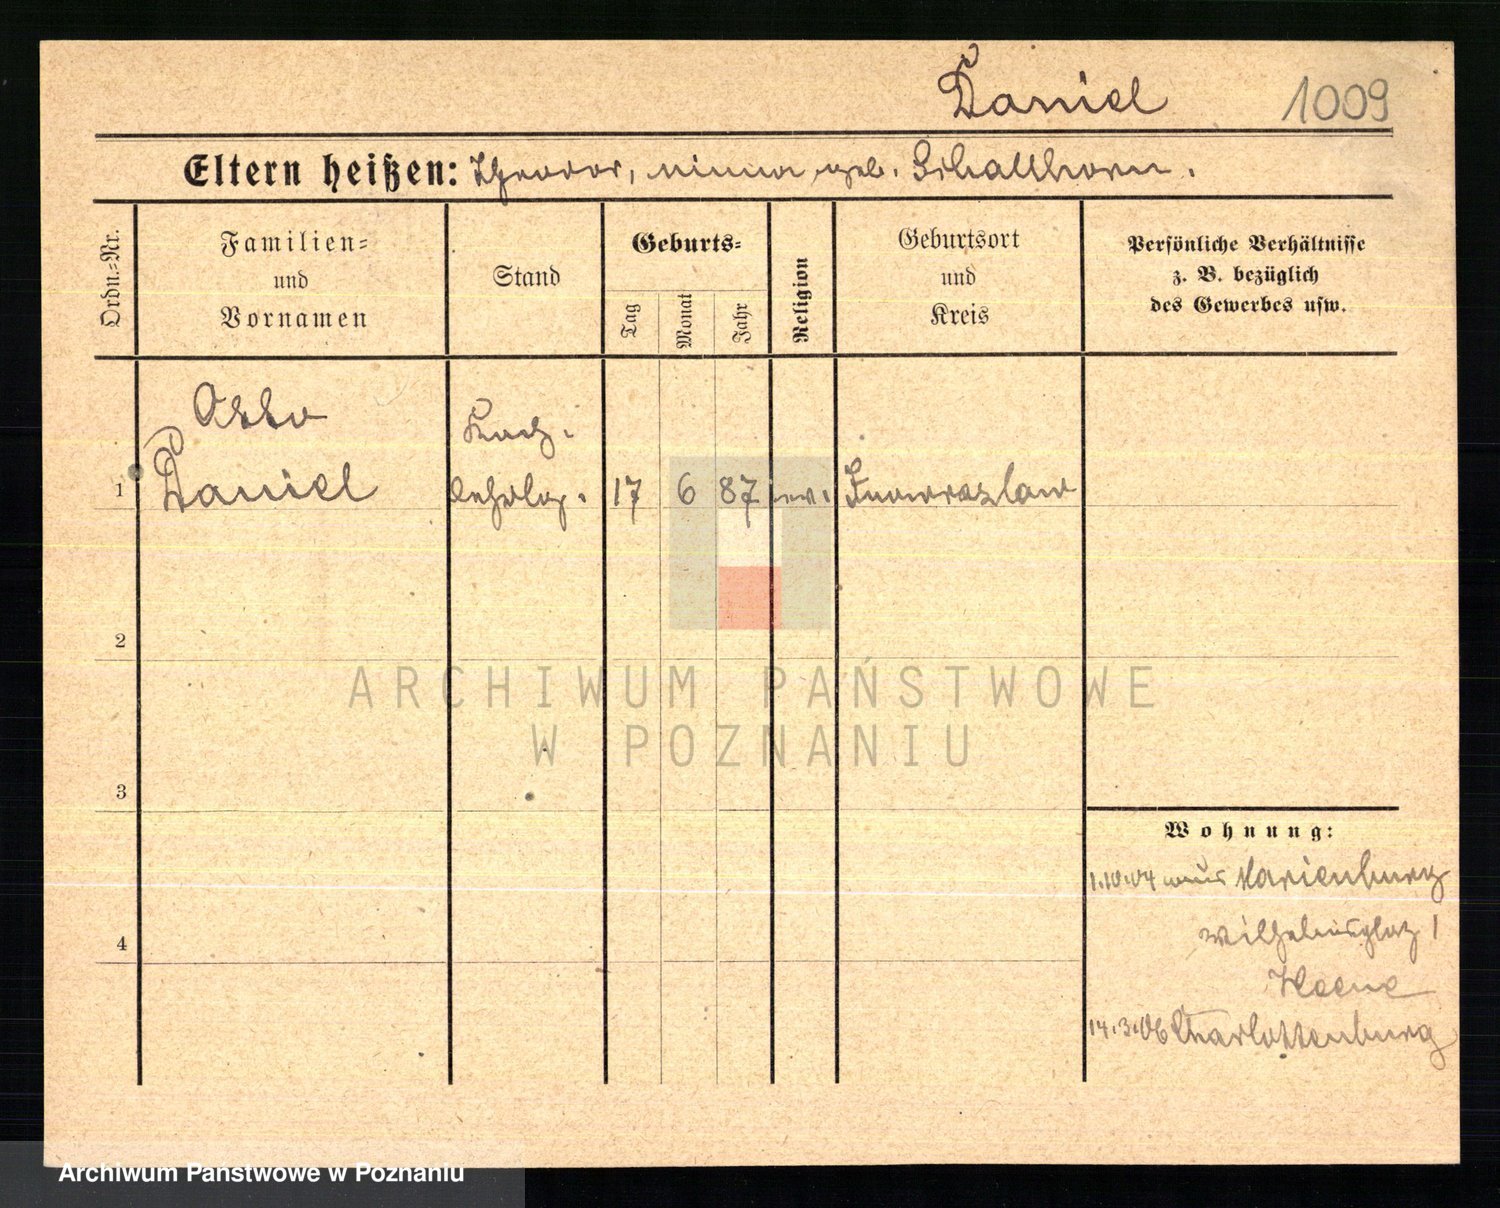 Daniel 1009
Eltern heißen: Theodor, Minna geb. Schallhorn.
Ordn.-Nr.
Familien-
und
Vornamen
Stand
Geburts-
Tag
Monat
Jahr
Religion
Geburtsort
und
Kreis
Persönliche Verhältnisse
z. B. bezüglich
des Gewerbes usw.
Otto
Daniel
17 6 87 ev. Inowrazlaw
1
2
3
4
ARCHIWUM PAŃSTWOWE
W POZNANIU
Wohnung:
1.10.04 aus Marienburg
Wilhelmsplatz 1
14.3.06 Charlottenburg
Archiwum Państwowe w Poznaniu